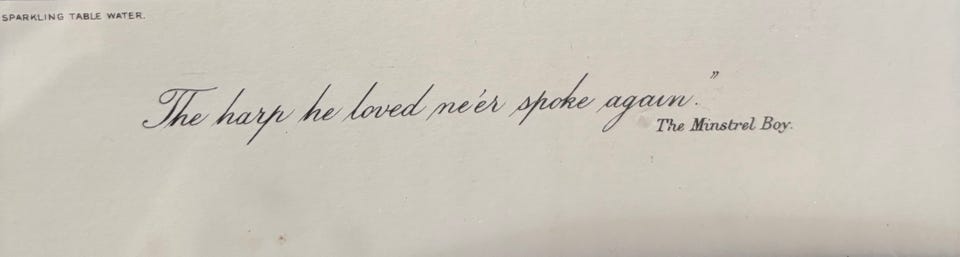 SPARKLING TABLE WATER.
The harp he loved ne'er spoke again."
The Minstrel Boy.